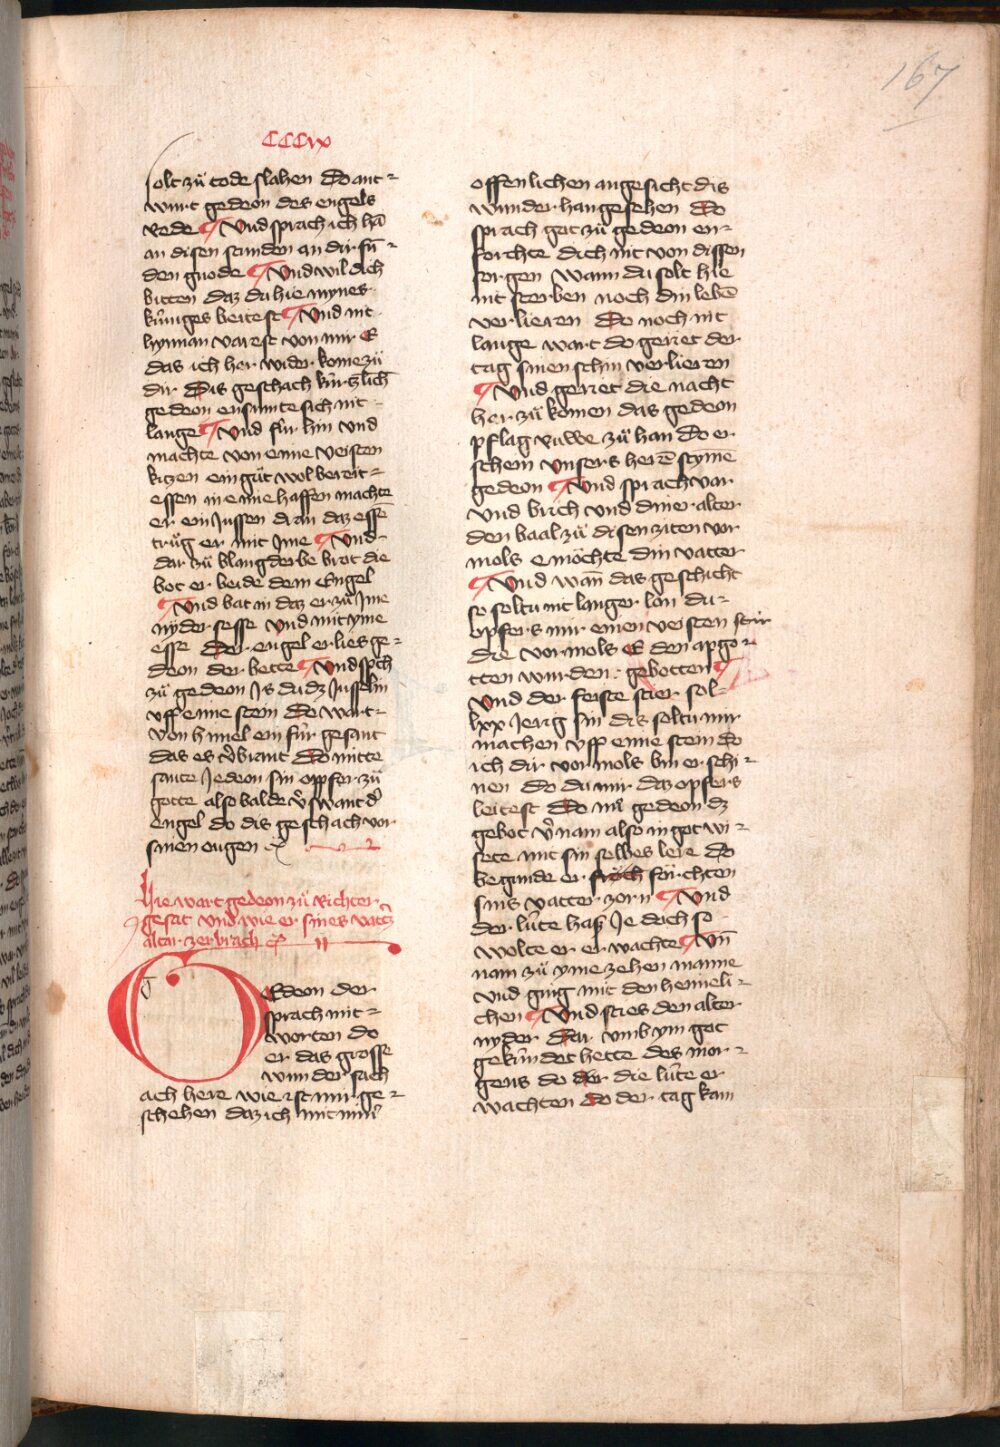 167
CCCix
solt zuͤ tode slahen Do ant=
wurt gedeon des engels
rede Vnd sprach ich hā
an disen stunden an dir fū=
den gnode Vnd wil dich
bitten daz du hie mynes
kuͤniges beitest Vnd nit
hynnan varest von mir E
das ich her wider kome zuͤ
dir Dis geschach kuͤrtzlich
gedeon ensumte sich nit
lange Vnd fuͤr hin vnd
machte von eime veisten
kitzen ein guͤt wol bereit=
essen in eime haffen machte
er ein Jussen dran daz essē
truͤg er mit Jme Vnd
dar zuͤ blang derbe brot die
bot er beide dem Engel
Vnd bat in daz er zuͤ Jme
nyder sesse vnd mit yme
esse Der engel erlies ge=
deon der bette Vnd sp̄ch
zuͤ gedeon Js du dz Jusselin
vff eime stein Do wart=
von himel ein fuͤr gesant
das es v̄brant Do mitte
sante Jedeon sin oppfer zuͤ
gotte also balde v̄swant d̄
engel do dis geschach vor
sinen ougen
Hie wart gedeon zuͤ Richter
gesat vnd wie er sines vatt̄s
altar zerbrach ii
GEdeon der
sprach mit=
worten do
er das grosse
wunder sach
ach here wie ist mir ge=
schehen daz ich mit minē
offenlichen angesicht dis
wunder han gesehen Do
sprach got zuͤ gedeon en=
foͤrchte dich nit von dissen
sorgen wann du solt hie
nit sterben noch din lebē
verlieren Do noch nit
lange wart do geriet der
tag sinen schin verlieren
Vnd geriet die nacht
her zuͤ komen das gedeon
pflag ruͦwe zuͤ han Do er
schein vnsers herē styme
gedeon Vnd sprach var
vnd brich vnd diner alter
den baal zuͤ disen ziten vor
mols e moͤchte din vatter
Vnd wan̄ das geschicht
so soltu nit langer lon du=
opfers mir einen veisten stier
die vor mols E den apgo=
tten wurden gebotten
Vnd der feiste stier sol=
lxx Jerig sin dis soltu mir
machen vff eime stein do
ich dir vor mols bin erschi=
nen do du mir daz opfers
leitest Do nū gedeon dz
gebot v̄nam also in got wi=
sete mit sin selbes lere do
begunde er foͤrchten
sins vatter zorn Vnd
der luͤte hass Je doch so
wolte er er wachte Vn̄
nam zuͤ yme zehen manne
vnd ging mit den heimeli=
chen Vnd sties den alter
nyder Dar vmb ym got
gekuͤndet hette des mor=
gens do der die luͤte er
wachten do der tag kam